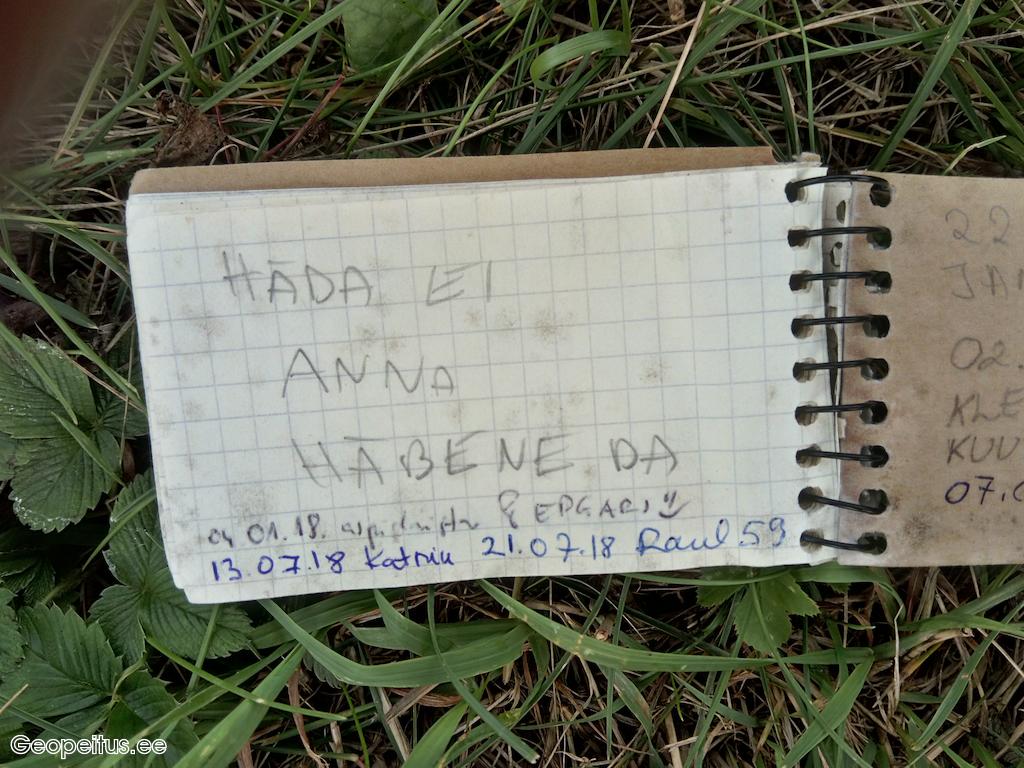 HÄDA EI
ANNA
HÄBENE DA
04 01.18. & EDGAR
13.07.18 Katrin 21.07.18 Raul59
22
JAN
02.
KLE
KUU
07.0
Geopeitus.ee